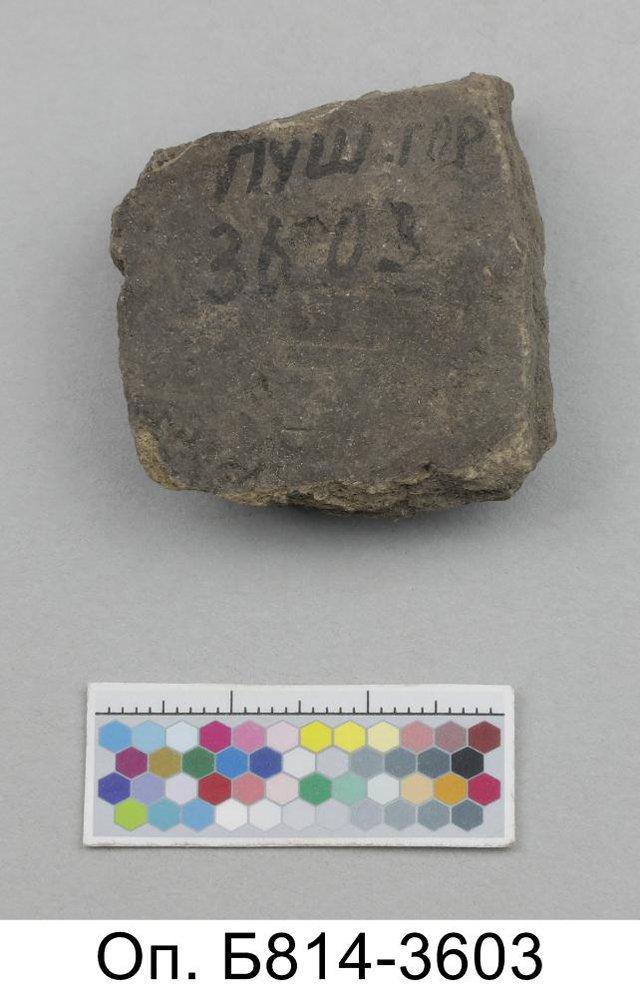 ПУШ.ГОР
3603
Оп. Б814-3603